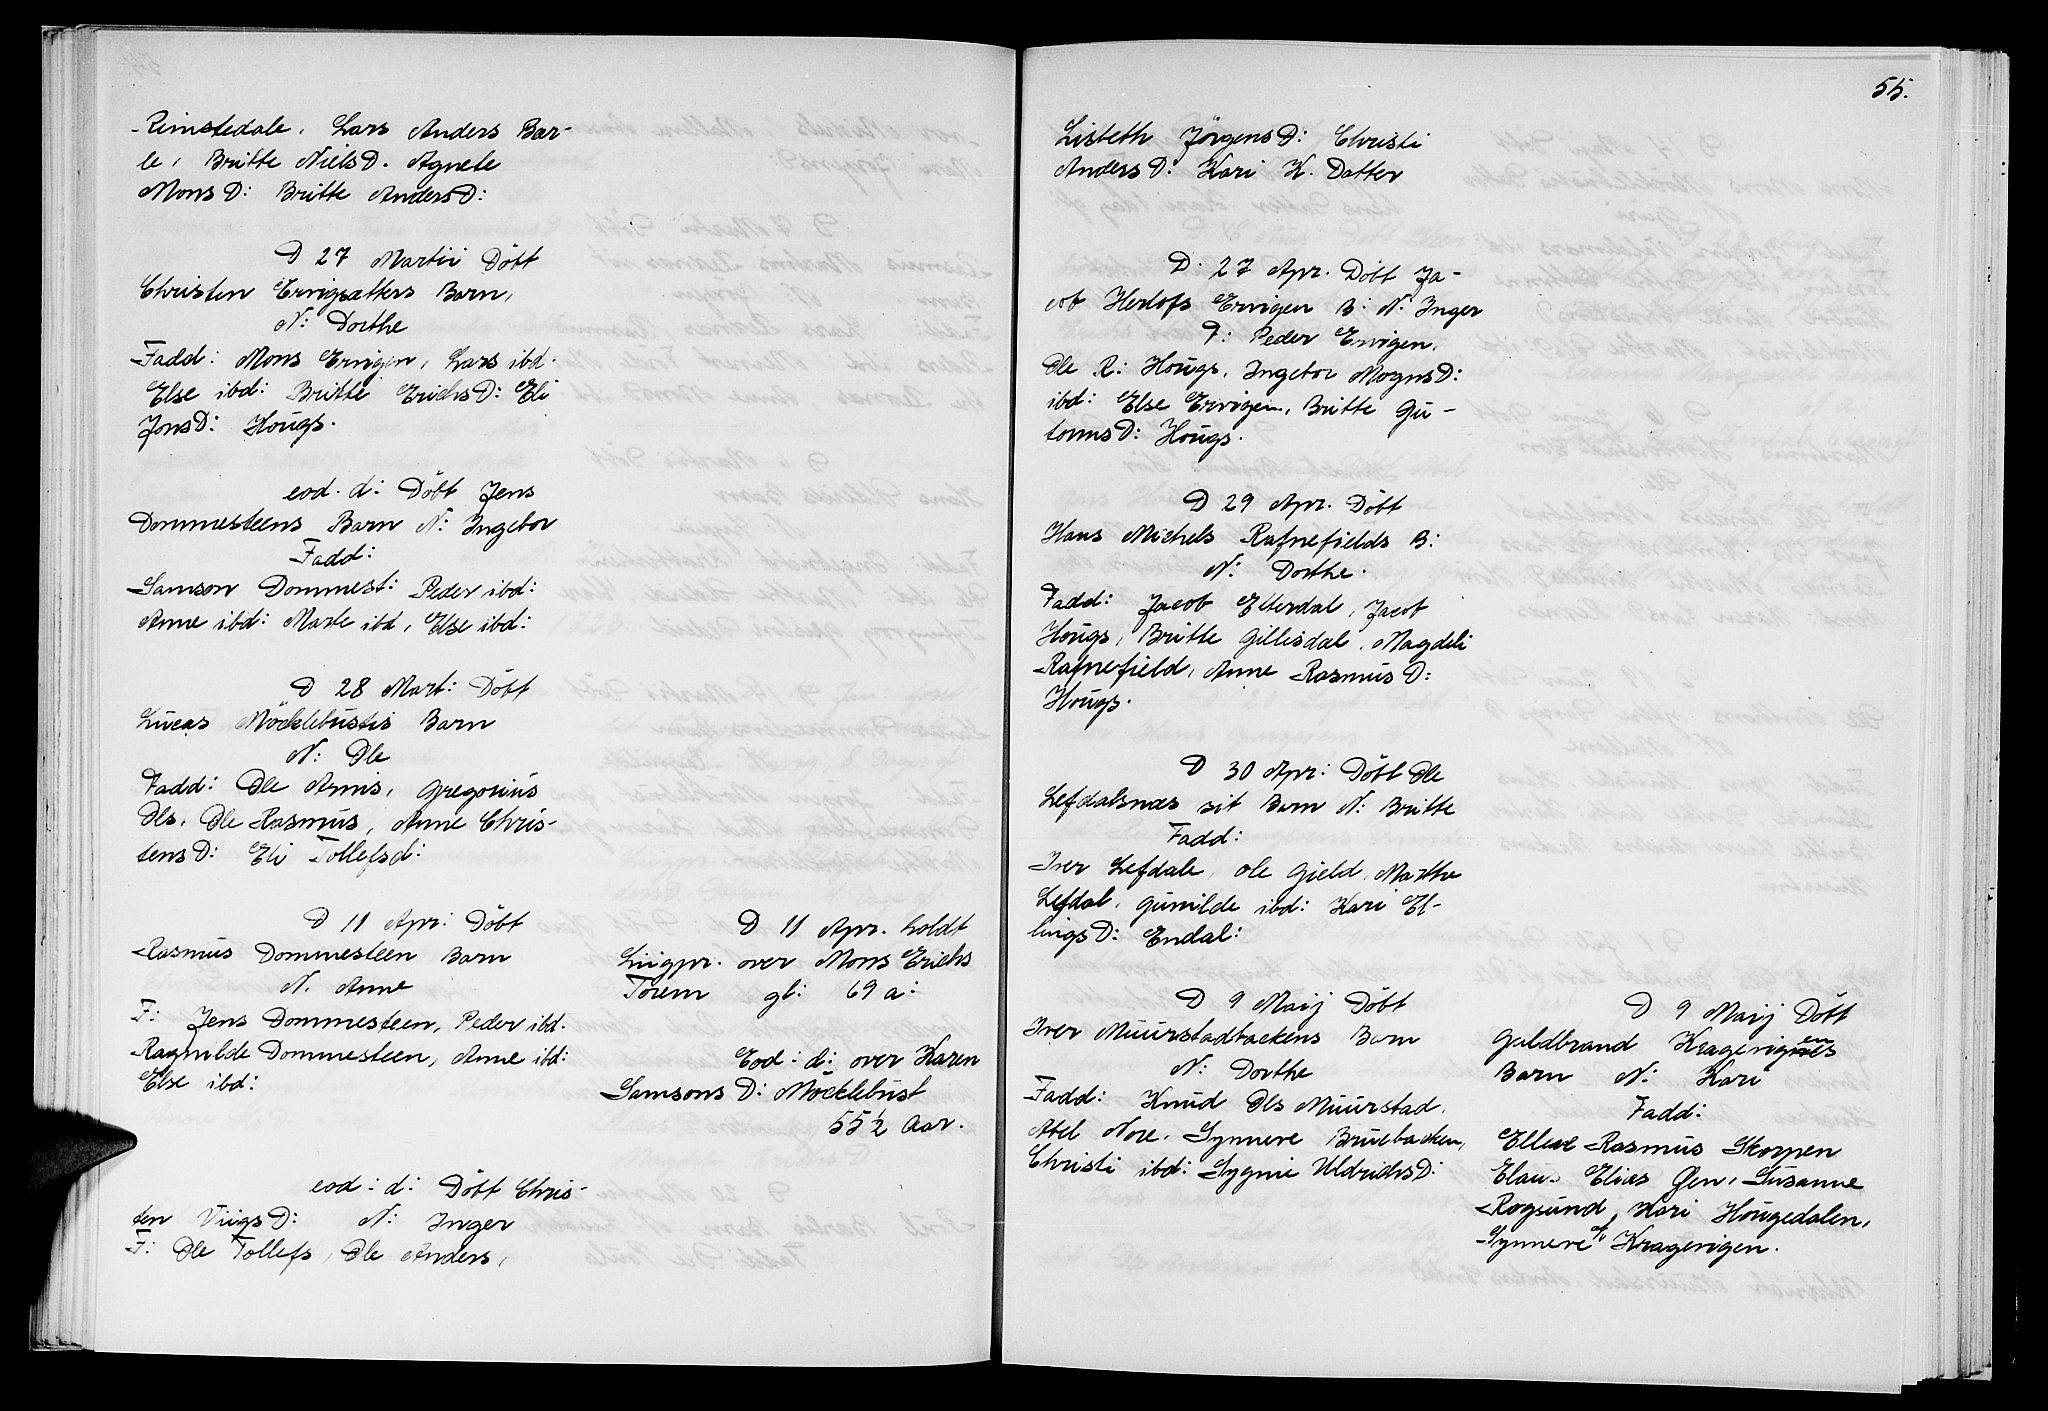 Rimstedale, Lars Anders Bær-
le, Britte NielsD. Agnete
MonsD: Britte AndersD:
D 27 Martii Döbt
Christen Ervigsætters Barn,
N: Dorthe
Fadd: Mons Ervigen, Lars ibd.
Else ibd: Britte ErichsD: Eli
JonsD: Hougs.
eod. d: Döbt Jens
Dommesteens Barn N: Ingebor
Fadd:
Samson Dommest: Peder ibd:
Anne ibd: Marte ibd, Else ibd:
D 28 Mart: Döbt
Lucas Möcklebustis Barn
N: Ole
Fadd: Ole Arnis, Gregorius
Ols, Ole Rasmus, Anne Chris-
tensD: Eli Tollefsd:
D 11 Apr: Döbt
Rasmus Dommesteen Barn
N. Anne
F: Jens Dommesteen, Peder ibd.
Ragnilde Dommesteen, Anne ibd:
Else ibd:
eod: d: Döbt Chris-
ten ViigsD: N: Inger
F: Ole Tollefs, Ole Anders,
D 11 Apr. holdt
Liigpr. over Mons Erichs
Torem gl: 69 a:
Eod: d: over Karen
Samsons D: Möcklebust
55½ Aar.
55.
Lisbeth JörgensD: Christi
AndersD: Kari K. Datter
D. 27 Apr. Döbt Ja-
cob Herlofs Ervigen B: N: Inger
F: Peder Ervigen,
Ole R: Hougs, Ingebor MognsD:
ibd: Else Ervigen, Britte Gu-
tormsD: Hougs.
D 29 Apr. Döbt
Hans Michels Rafnefields B:
N: Dorthe.
Fadd: Jacob Elterdal, Jacob
Hougs, Britte Gillesdal, Magdeli
Rafnefield, Anne RasmusD:
Hougs.
D 30 Apr: Döbt Ole
Lefdalsnæs sit Barn N: Britte
Fadd:
Iver Lefdale, Ole Gield, Marthe
Lefdal, Gunilde ibd: Kari El-
lingsD: Endal:
D 9 Maij Döbt
Iver Muurstadbackens Barn
N: Dorthe
Fadd: Knud Ols Muurstad,
Abel Nore, Synnere Bruebacken,
Christi ibd: Sygnie UldrichsD:
D 9 Maij Döbt
Guldbrand Kragerigens
Barn N: Kari
Fadd:
Rasmus Skorpen
Elias Øen, Susanne
Rogsund, Kari Hougedalen,
Synnere Kragerigen.